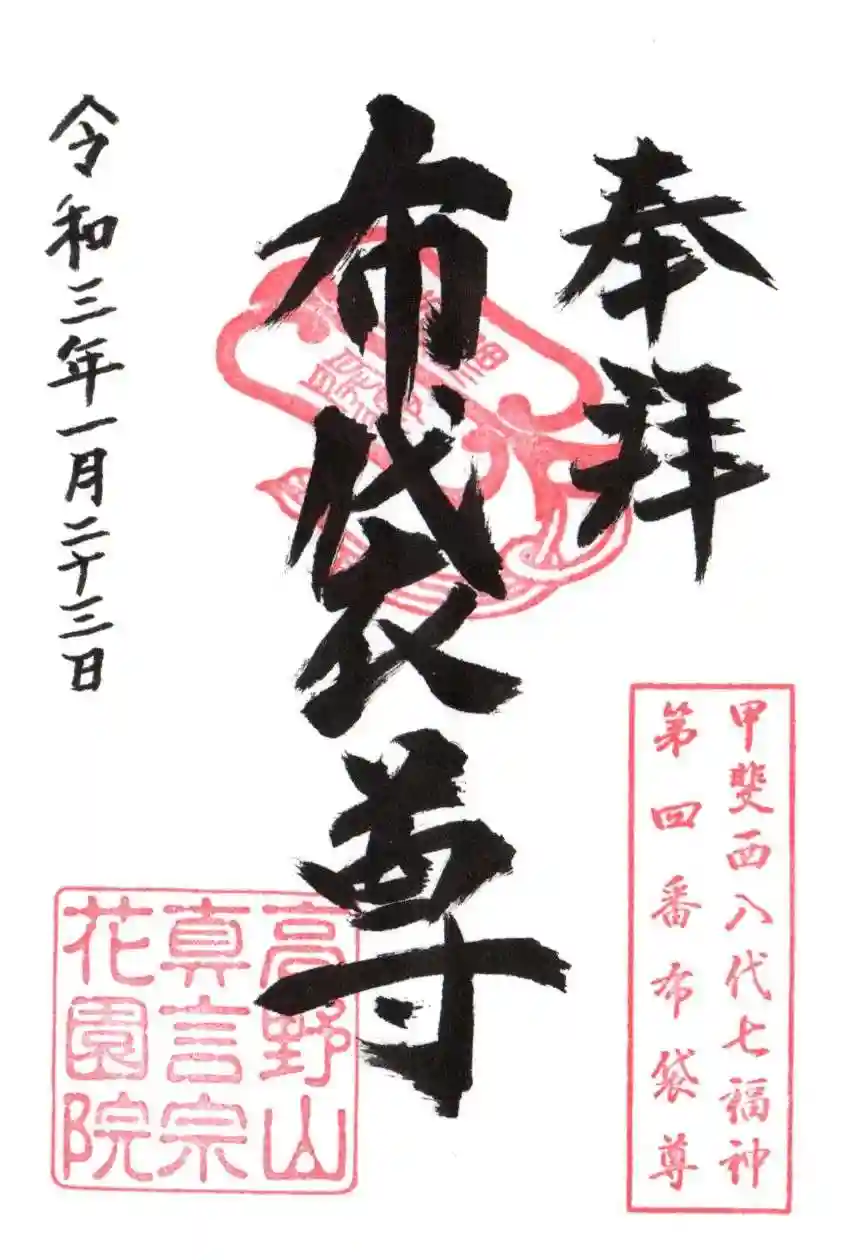 奉拝
甲斐西八代七福神
第四番布袋尊
布袋尊
高野山
真言宗
花園院
令和三年一月二十三日